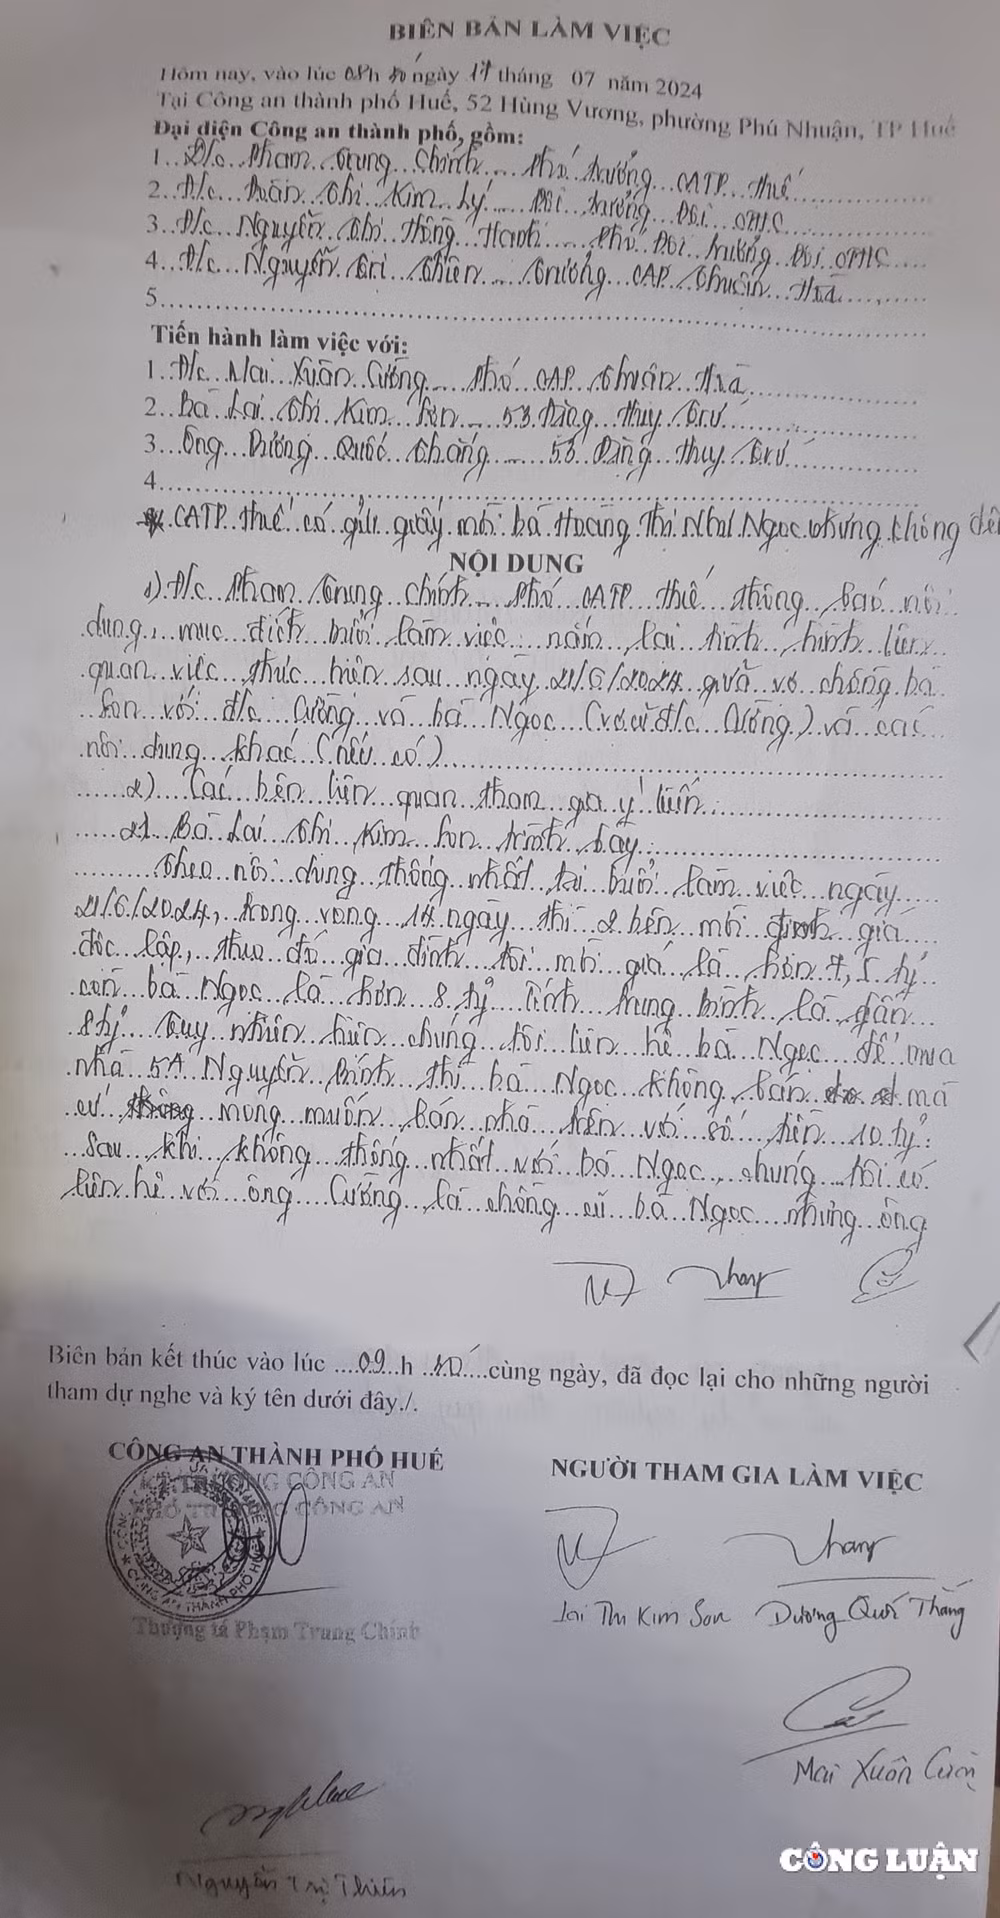 BIÊN BẢN LÀM VIỆC
Hôm nay, vào lúc 08h 30 ngày 17 tháng 07 năm 2024
Tại Công an thành phố Huế, 52 Hùng Vương, phường Phú Nhuận, TP Huế
Đại diện Công an thành phố, gồm:
1. Đ/c Phạm Trung Chính - Phó trưởng CATP Huế
2. Đ/c Đoàn Thị Kim Lý - Đội trưởng Đội QLHC
3. Đ/c Nguyễn Thị Hồng Hạnh - Phó Đội trưởng Đội QLHC
4. Đ/c Nguyễn Tri Thiên - Trưởng CAP Thuận Hoà
5
Tiến hành làm việc với:
1. Đ/c Mai Xuân Cường - Phó CAP Thuận Hoà
2. Bà Lại Thị Kim Son - 53 Đặng Thuỳ Trâm
3. Ông Dương Quốc Thắng - 53 Đặng Thuỳ Trâm
4
* CATP Huế có gửi giấy mời bà Hoàng Thị Như Ngọc nhưng không đến
NỘI DUNG
1) Đ/c Phạm Trung Chính - Phó CATP Huế thông báo nội
dung, mục đích buổi làm việc nắm lại tình hình liên
quan việc thực hiện sau ngày 21/6/2024 giữa vợ chồng bà
Son với đ/c Cường và bà Ngọc (vợ cũ đ/c Cường) và các
nội dung khác (nếu có)
2) Các bên liên quan tham gia ý kiến:
2.1 Bà Lại Thị Kim Son trình bày:
Theo nội dung thống nhất tại buổi làm việc ngày
21/6/2024, trong vòng 14 ngày thì 2 bên mời định giá
độc lập, theo đó gia đình tôi mời giá là hơn 7,5 tỷ
còn bà Ngọc là hơn 8 tỷ. Tính trung bình là gần
8 tỷ. Tuy nhiên hiện chúng tôi liên hệ bà Ngọc để mua
nhà 54 Nguyễn Bính thì bà Ngọc không bán mà
có mong muốn bán nhà trên với số tiền 10 tỷ.
Sau khi không thống nhất với bà Ngọc, chúng tôi có
liên hệ với ông Cường là chồng cũ bà Ngọc nhưng ông
Thang
Biên bản kết thúc vào lúc 09 h 40 cùng ngày, đã đọc lại cho những người
tham dự nghe và ký tên dưới đây./.
CÔNG AN THÀNH PHỐ HUẾ
KT. TRƯỞNG CÔNG AN
PHÓ TRƯỞNG CÔNG AN
CÔNG AN THÀNH PHỐ HUẾ
Thượng tá Phạm Trung Chính
NGƯỜI THAM GIA LÀM VIỆC
Thang
Lại Thị Kim Son Dương Quốc Thắng
Mai Xuân Cường
Nguyễn Tri Thiên
CÔNG LUẬN